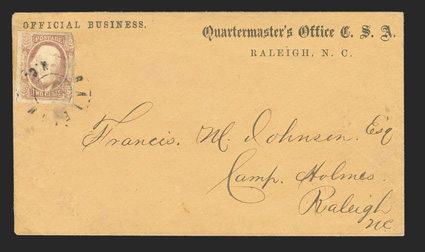 OFFICIAL BUSINESS.
Quartermaster's Office C. S. A.
RALEIGH, N. C.
POSTAGE
TWO CENTS
RALEIGH N.C.
Francis. M. Johnson. Esq
Camp. Holmes.
Raleigh
NC